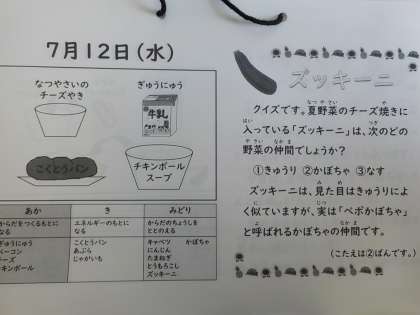 7月12日(水)
なつやさいの
チーズやき
ぎゅうにゅう
牛乳
こくとうパン
チキンボール
スープ
あか
き
みどり
からだをつくるもとに
なる
エネルギーのもとに
なる
からだのちょうしを
ととのえる
ぎゅうにゅう
ベーコン
チーズ
チキンボール
こくとうパン
あぶら
じゃがいも
キャベツ かぼちゃ
にんじん
たまねぎ
とうもろこし
ズッキーニ
ズッキーニ
クイズです。夏野菜のチーズ焼きに
入っている「ズッキーニ」は、次のどの
野菜の仲間でしょうか?
①きゅうり ②かぼちゃ ③なす
ズッキーニは、見た目はきゅうりによ
く似ていますが、実は「ペポかぼちゃ」
と呼ばれるかぼちゃの仲間です。
(こたえは②ばんです。)